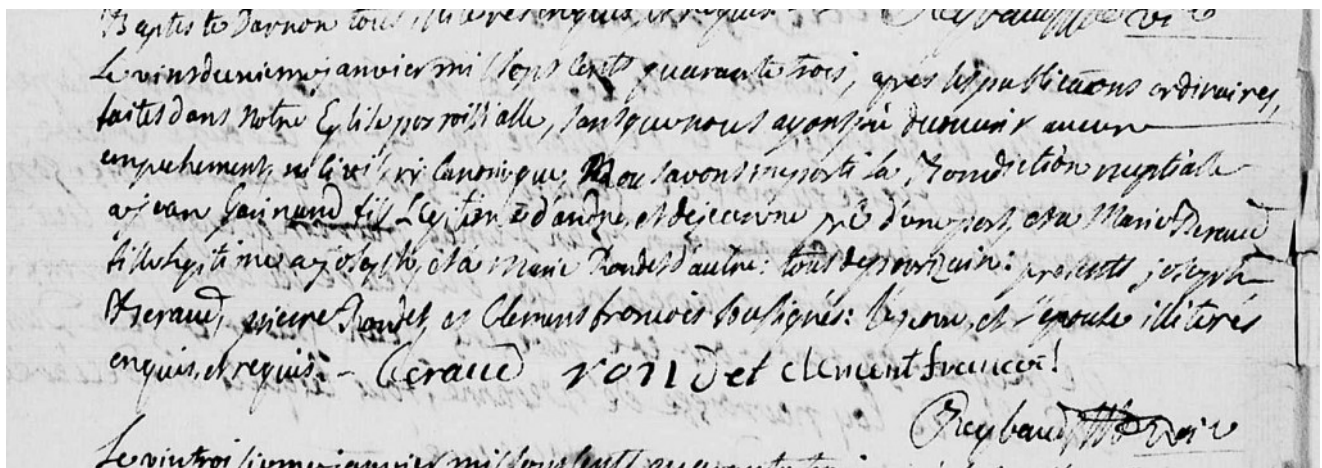 Baptiste Darnon tous illiteres enquis et requis. Reybaud
Le vinsdeuxieme janvier mil sept cents quarante trois, apres les publications ordinaires,
faites dans notre Eglise parroissialle, sans que nous ayons pu decouvrir aucun
empechement, ni livil, ni canonique, Nou savons imparti la Benediction nuptialle
a jean fils Legitime a d'andre, et de jeanne d'une part, et a Marie Beraud
fille legitime a joseph, et a Marie Rondet d'autre: tous de: presents joseph
Beraud, pierre Rondet, et Clement francois sousignés: l'epoux, et l'epouse illiterés
enquis, et requis. - Beraud rondet clement francois
Reybaud
Le vintroisieme janvier mil sept cents quarante trois